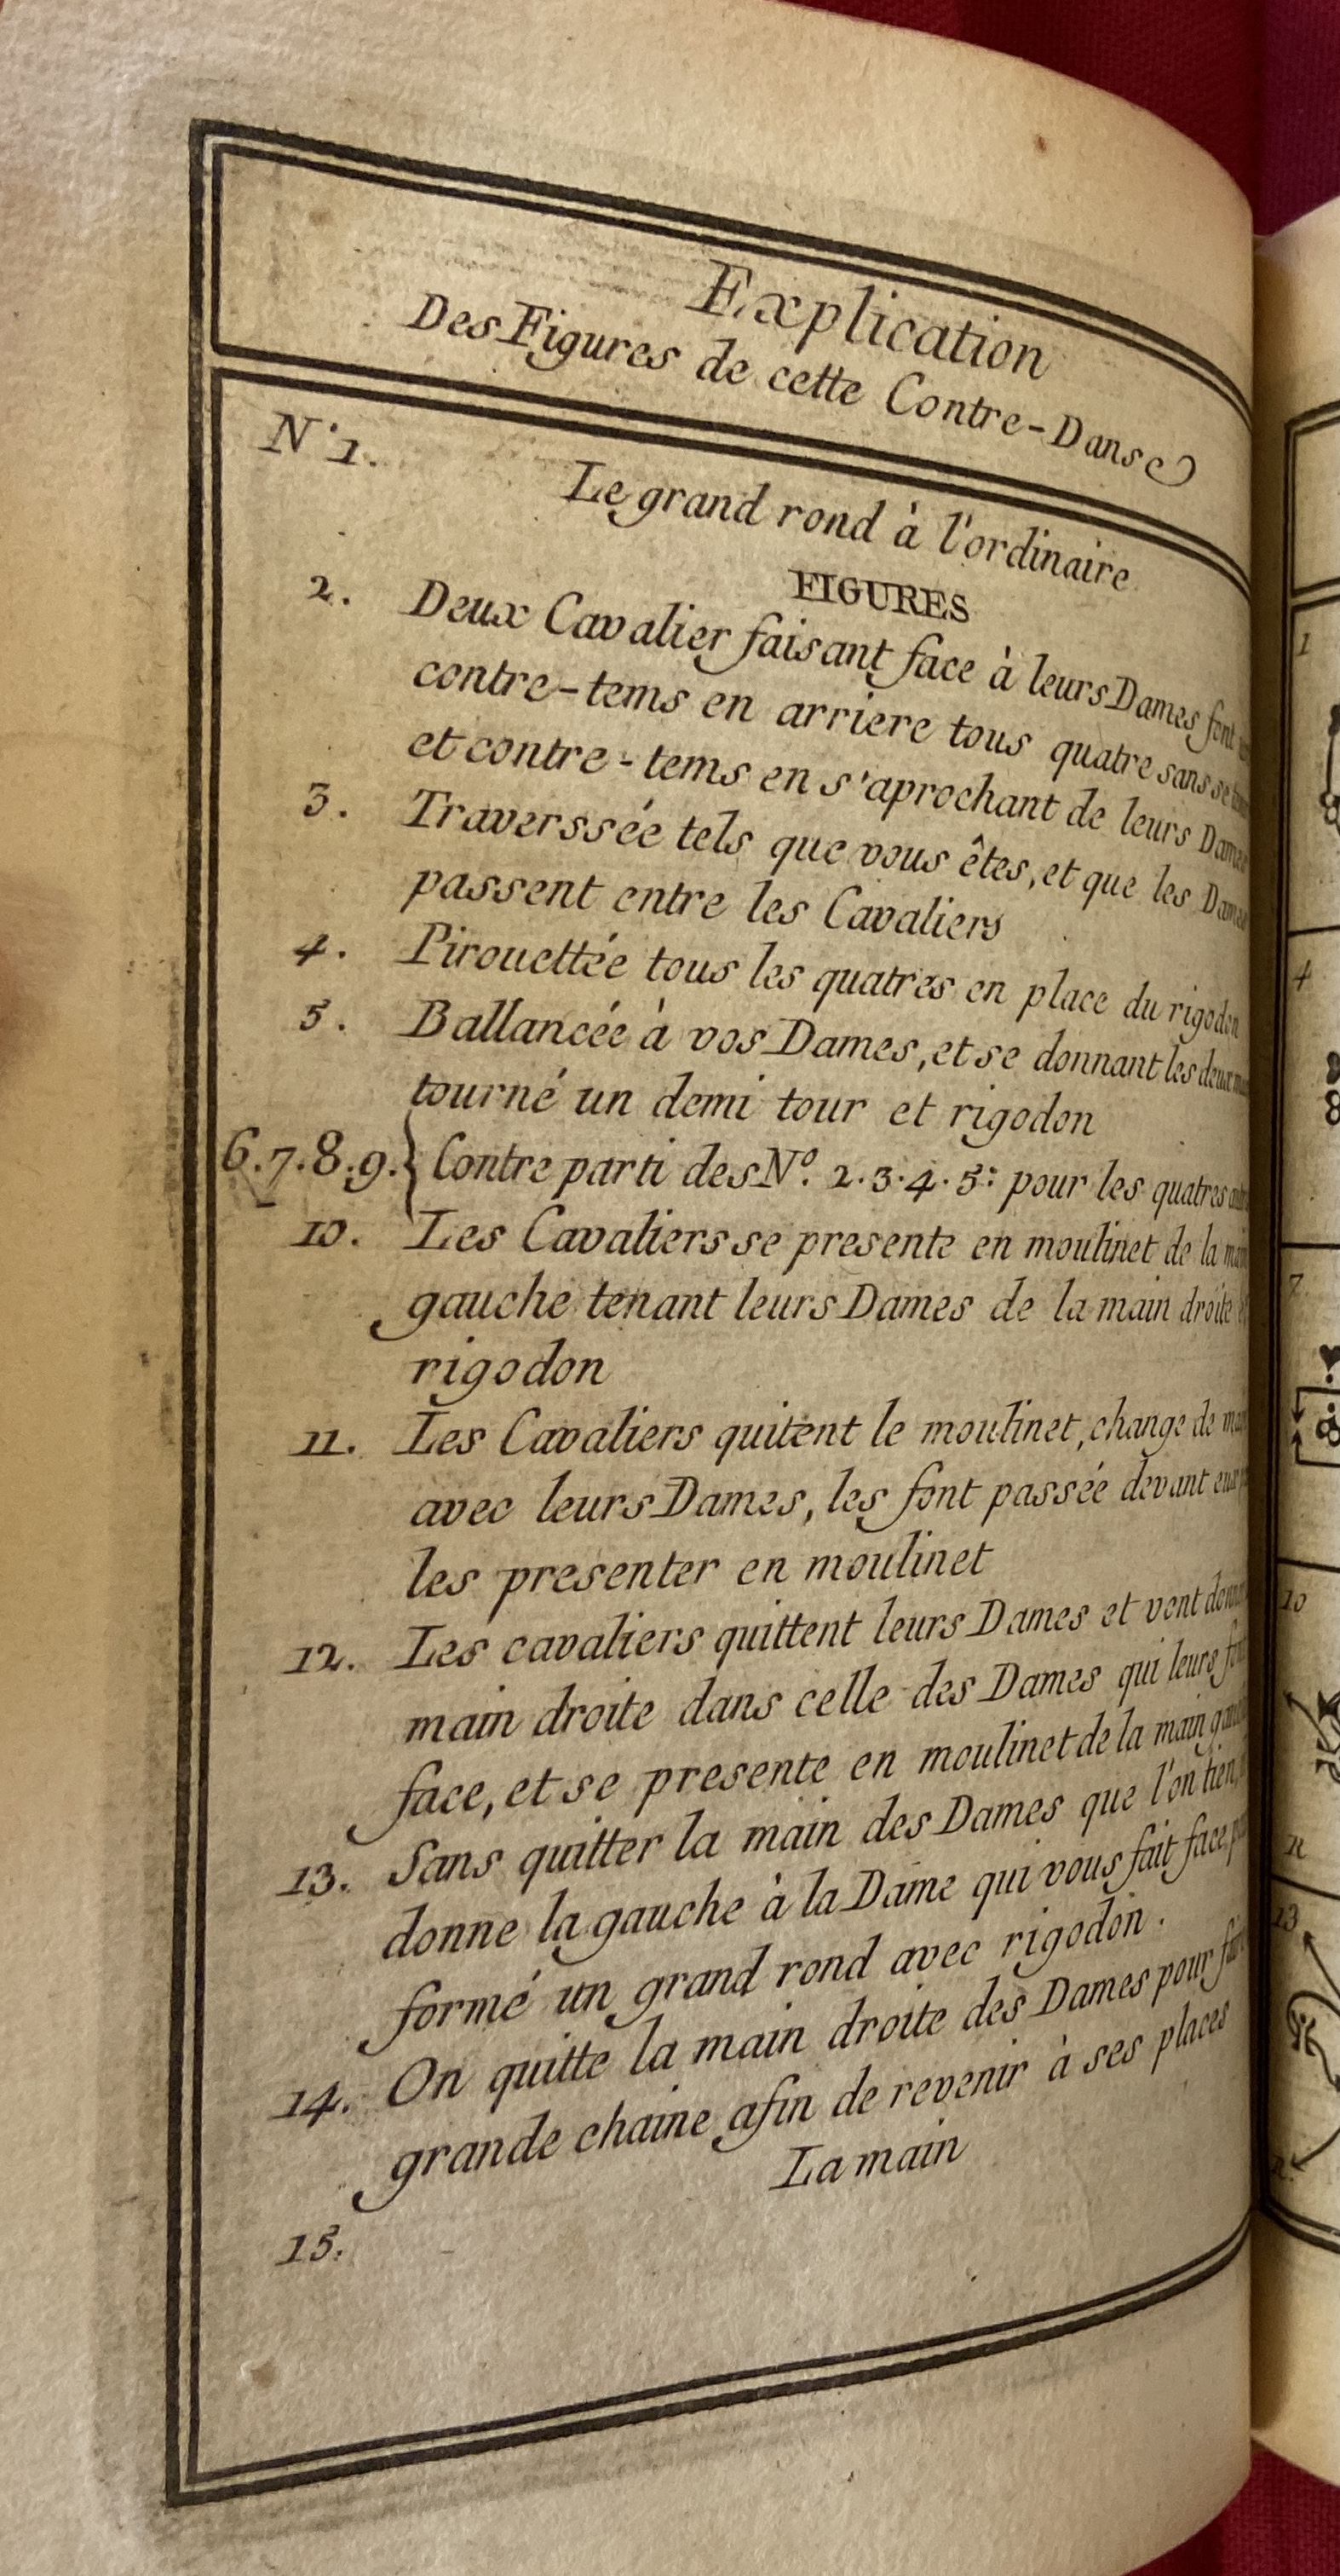 Explication
Des Figures de cette Contre-Danse
N.º 1.
Le grand rond à l'ordinaire
FIGURES
2. Deux Cavalier faisant face à leurs Dames font
contre-tems en arriere tous quatre sans se
et contre-tems en s'aprochant de leurs Dames
3. Traverssée tels que vous êtes, et que les Dames
passent entre les Cavaliers
4. Pirouettée tous les quatres en place du rigodon
5. Ballancée à vos Dames, et se donnant les deux
tourné un demi tour et rigodon
6.7.8.9.} Contre parti des Nº. 2.3.4.5: pour les quatres
10. Les Cavaliers se presente en moulinet de la main
gauche tenant leurs Dames de la main droite
rigodon
11. Les Cavaliers quitent le moulinet, change de
avec leurs Dames, les font passée devant
les presenter en moulinet
12. Les cavaliers quittent leurs Dames et vont
main droite dans celle des Dames qui leurs
face, et se presente en moulinet de la main
13. Sans quitter la main des Dames que l'on tien,
donne la gauche à la Dame qui vous fait face,
formé un grand rond avec rigodon.
14. On quitte la main droite des Dames pour
grande chaine afin de revenir à ses places
La main
15.
1
4
8
7
8
10
R
13
R